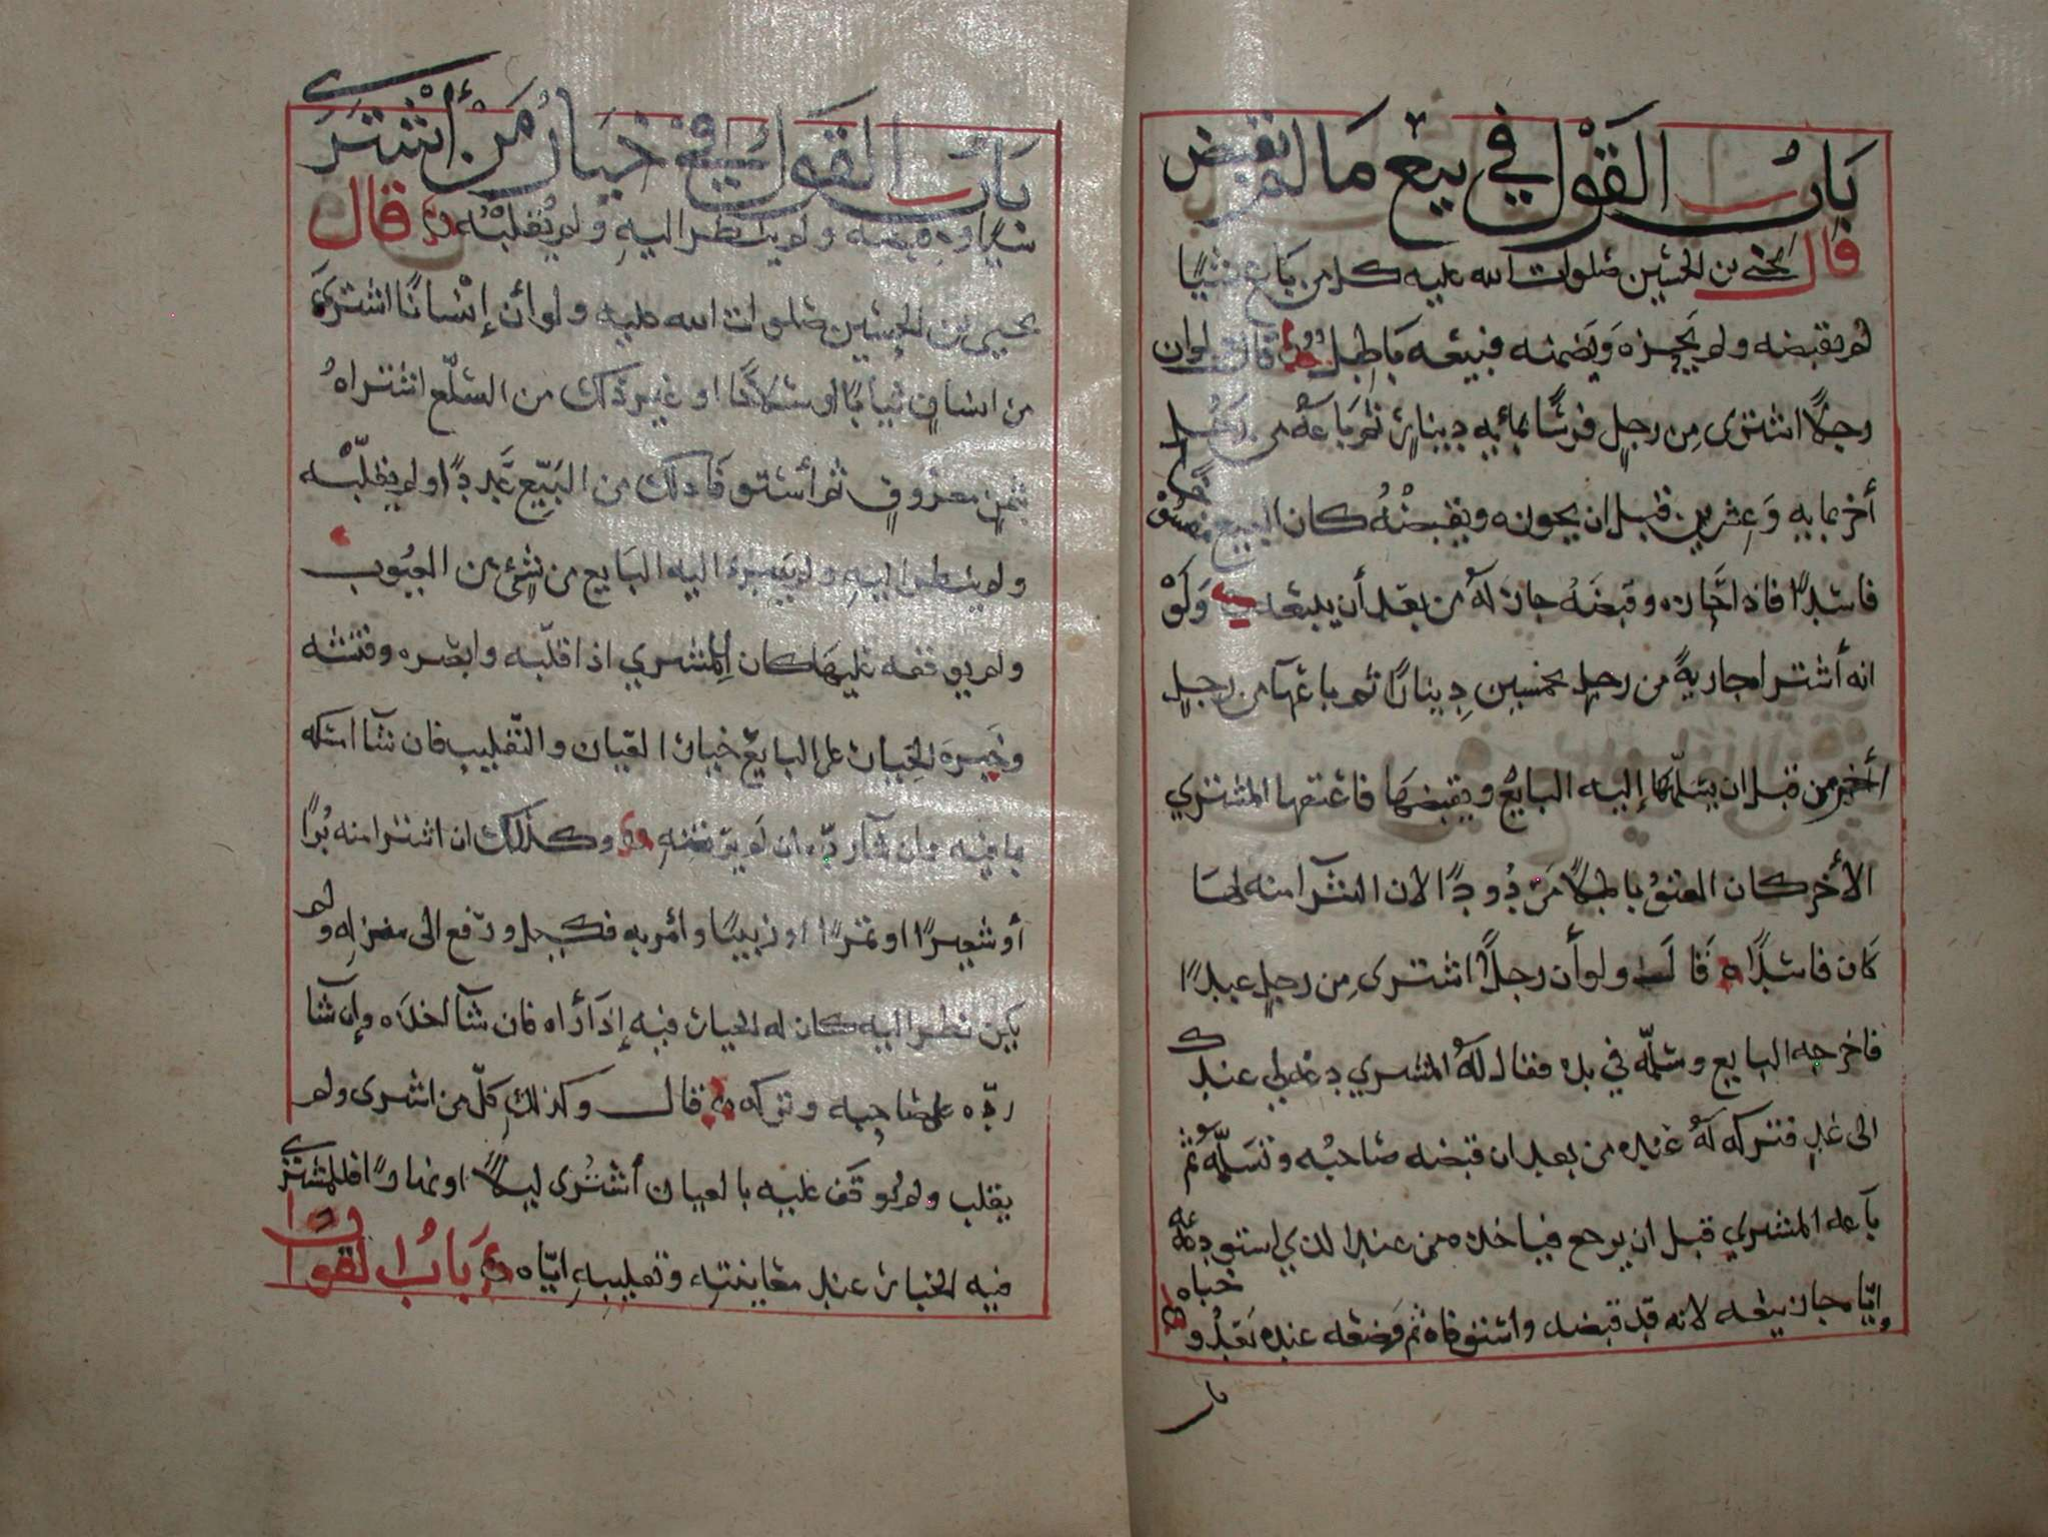 باب القول في بيع ما لم يقبض
قال يحيى بن الحسين صلوات الله عليه كل من باع شيئا
لم يقبضه ولم يحزه ويضمنه فبيعه باطل قال ولو ان
رجلا اشترى من رجل فرسًا بمائه دينار ثم باعه من رجل
أخر بمايه وعشرين قبل ان يحوزه ويقبضه كان البيع
فاسدًا فاذا حازه وقبضه جاز له من بعد أن يبيعه ولو
انه أشترا جارية من رجل بخمسين دينارًا ثم باعها من رجل
أخر من قبل ان يسلمها إليه البايع ويقبضها فاعتقها المشتري
الأخر كان العتق باطلًا مردودًا لان الشرآ منه لها
كان فاسدًا قال ولو أن رجلًا اشترى من رجل عبدًا
فاخرجه البايع وسلمه في يده فقال له المشري دعه لي عندك
الى غد فتركه له عنده من بعد ان قبضه صاحبه وتسلمه ثم
باعه المشري قبل ان يرجع فياخذه من عند الذي استودعه
اياه جاز بيعه لانه قد قبضه واستوفاه ثم وضعه عنده بعد و
خباه
باب القول في خيار من أشترى
شيًا وقبضه ولم ينظر اليه ولم يقلبه قال
يحيى بن الحسين صلوات الله عليه ولو أن إنسانًا اشترى
من انسان ثيابًا او سلاحًا او غير ذلك من السلع اشتراه
بثمن معروف ثم أستوفا ذلك من البيع عددًا ولم يقلبه
ولم ينظر اليه ولم يبره اليه البايع من شيء من العيوب
ولم يوقفه عليها كان للمشري اذا قلبه وابصره وفتشه
وخبره الخيار على البايع خيار العيان والتقليب فان شآ امسكه
بما فيه وان شآ رده ان لم يرتضه وكذلك ان اشترا منه برًا
أو شعيرًا او تمرًا او زبيبًا وأمر به فكيل ودفع الى منزله ولم
يكن نظر اليه كان له الخيار فيه إذا رأه فان شآ اخذه وإن شآ
رده على صاحبه وتركه قال وكذلك كل من اشرى ولم
يقلب ولم يوقف عليه بالعيان أشترى ليلًا او نهارًا فللمشتري
فيه الخيار عند معاينته وتقليبه اياه باب القول